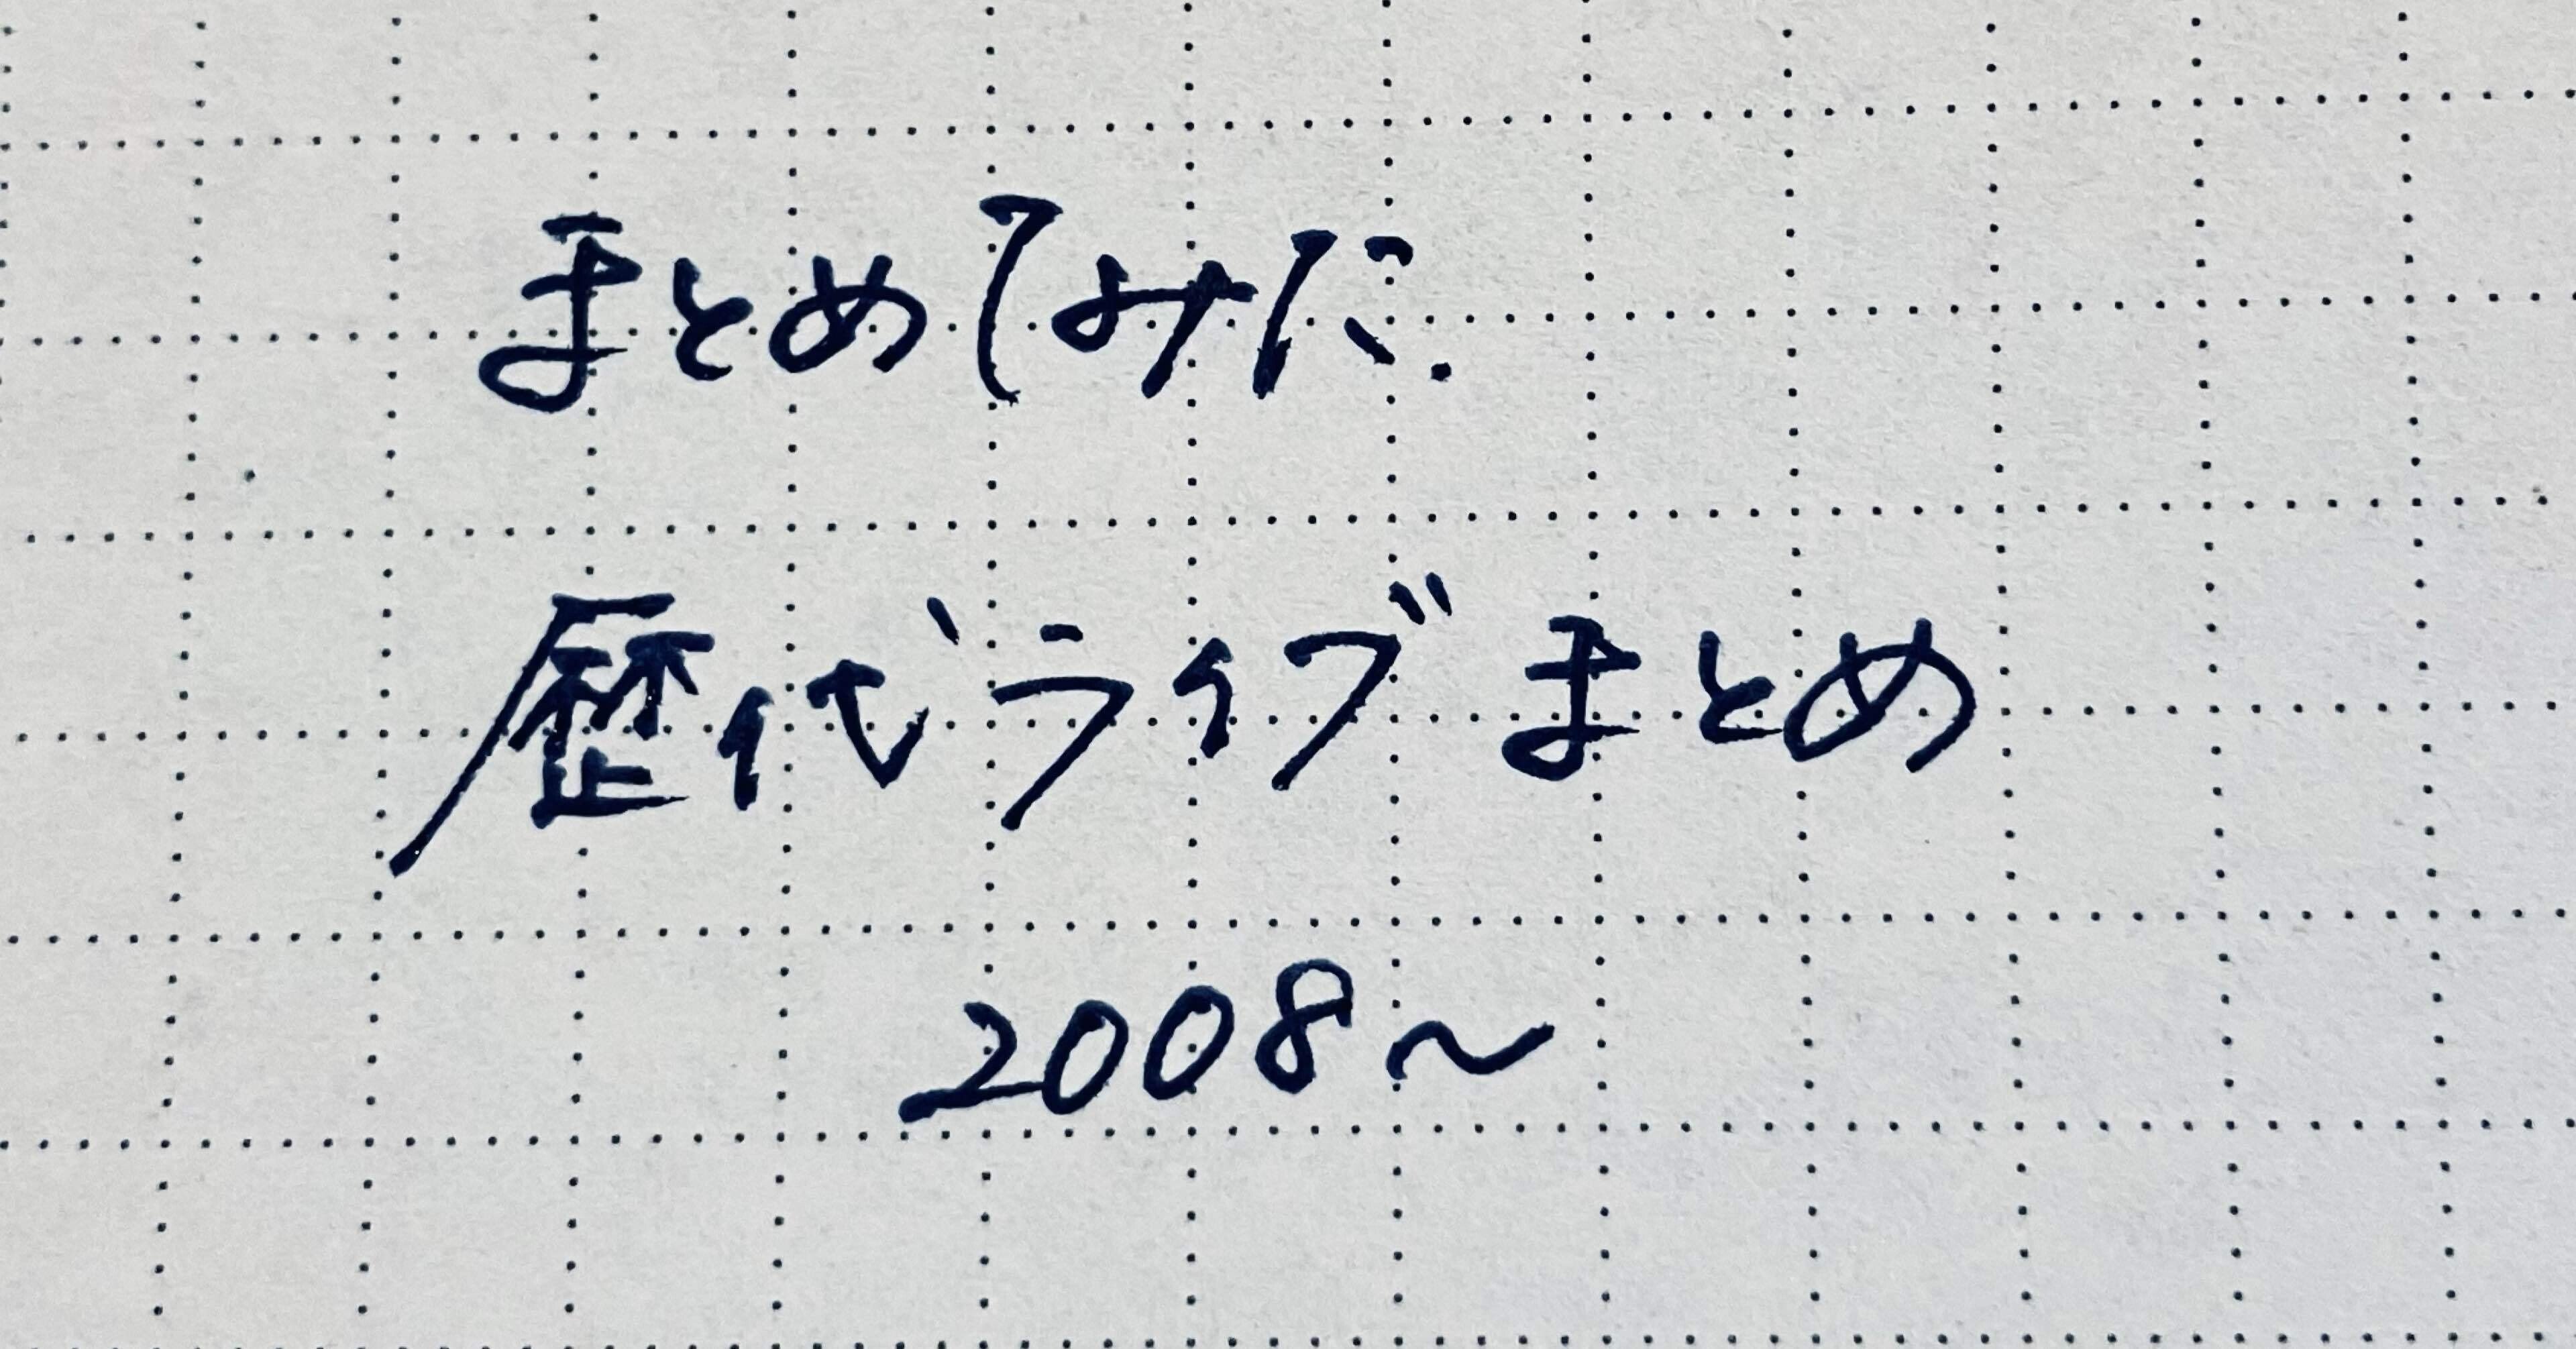 まとめてみた.
歴代ライブまとめ
2008〜